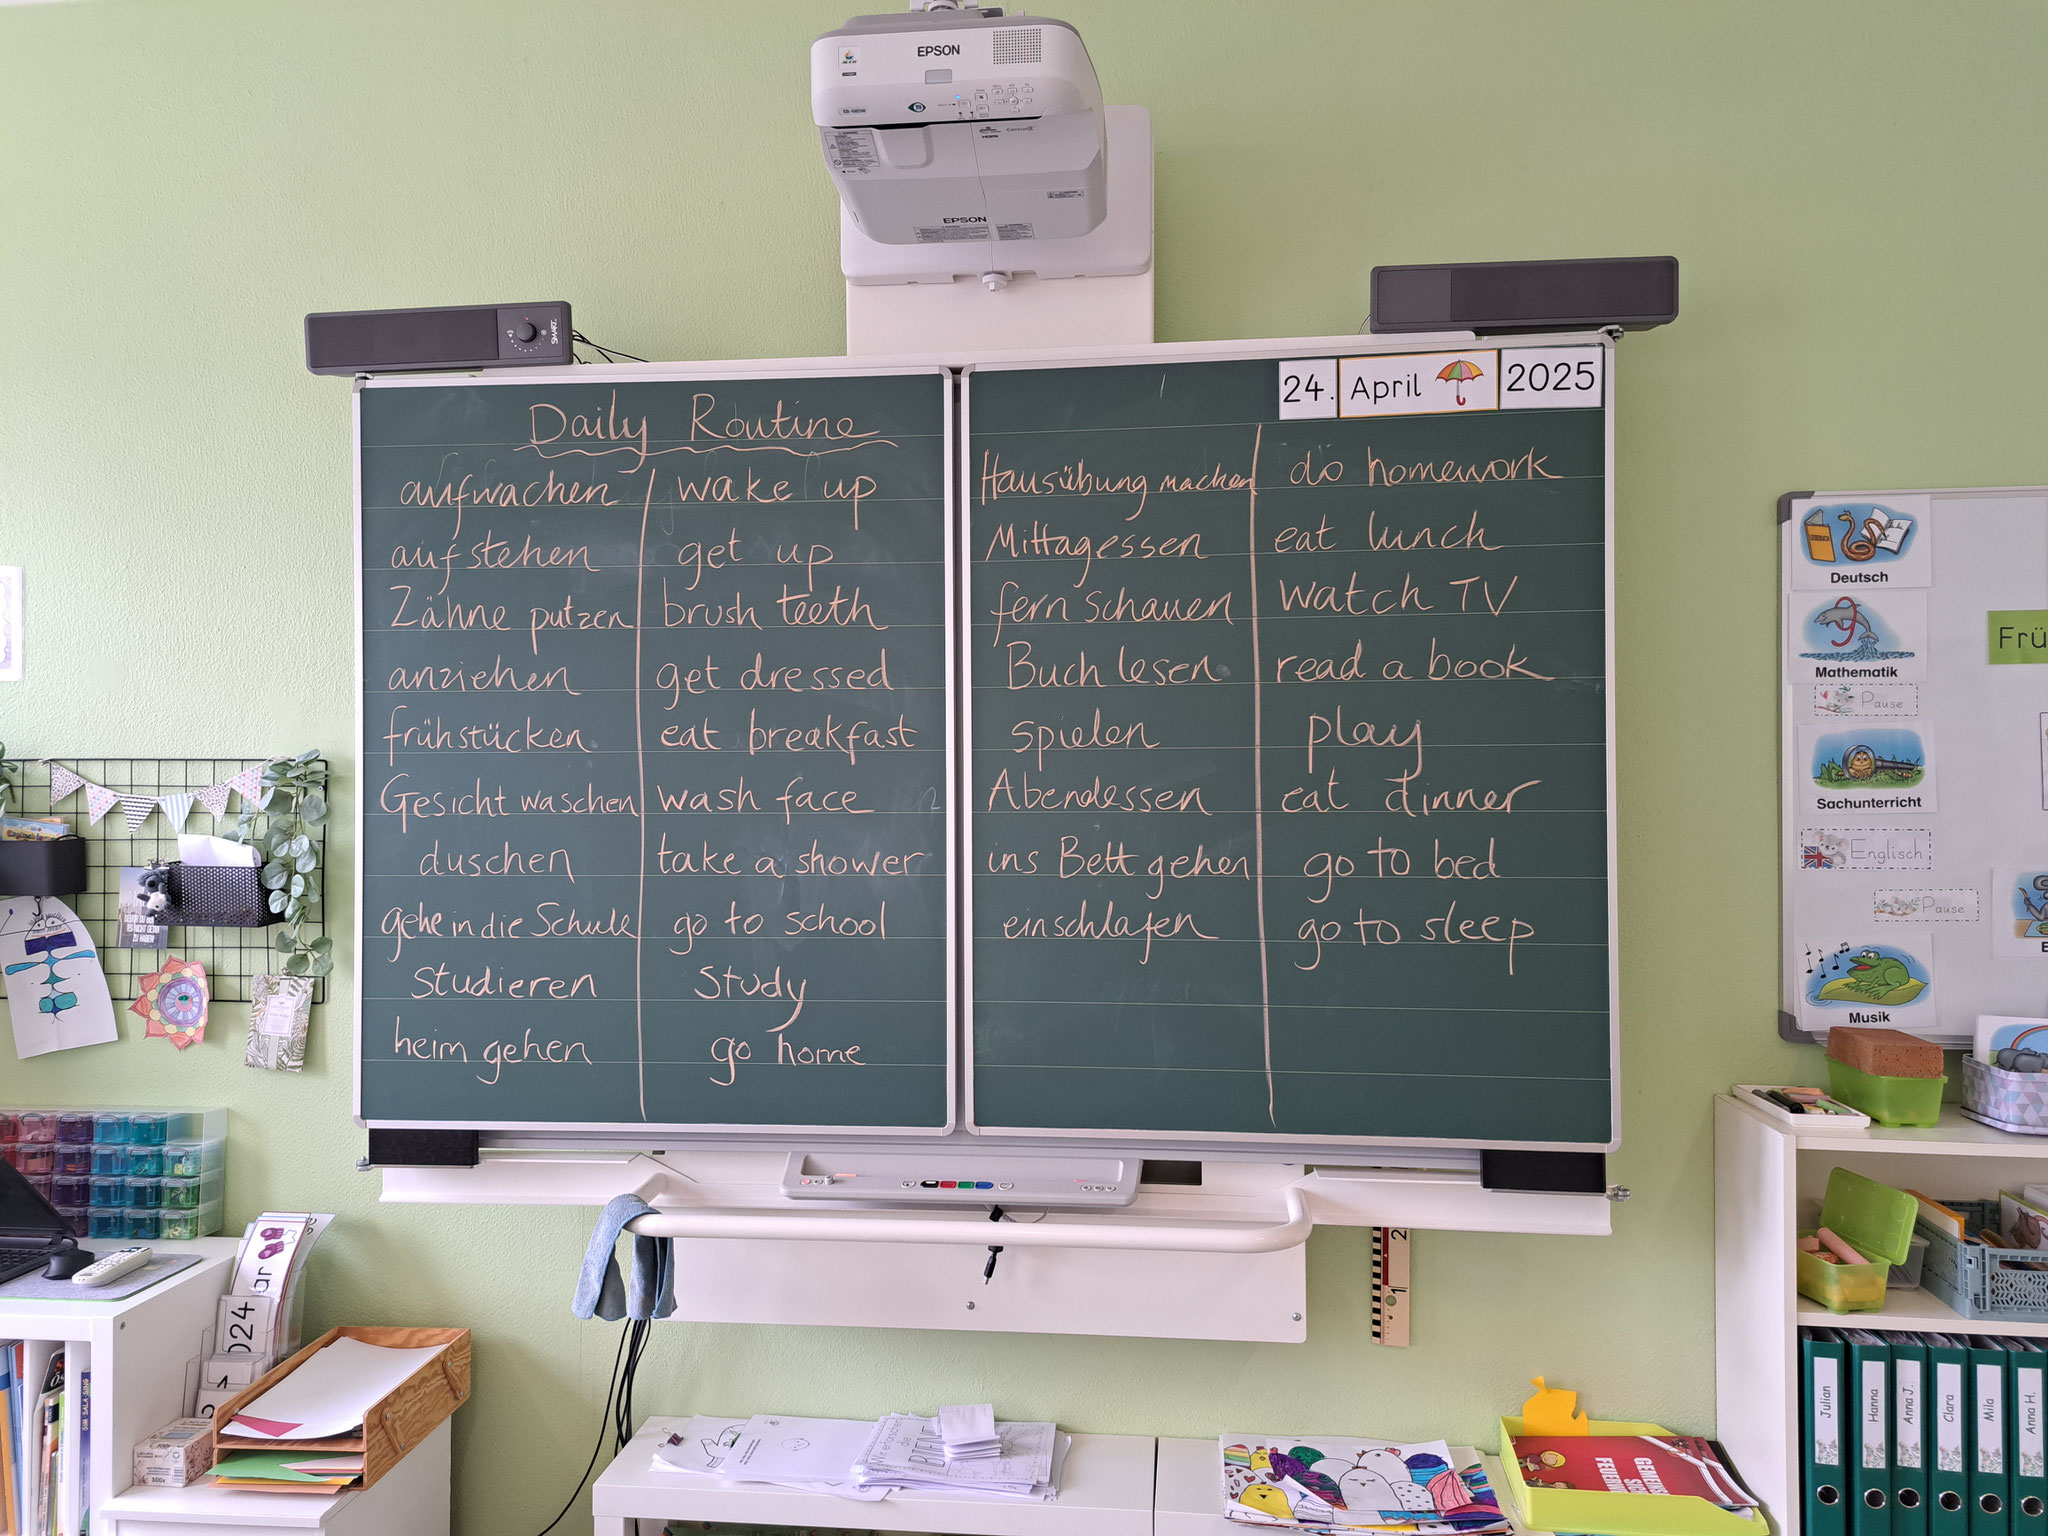 EPSON
EPSON
SMART
24. April 2025
Daily Routine
aufwachen wake up
aufstehen get up
Zähne putzen brush teeth
anziehen get dressed
frühstücken eat breakfast
Gesicht waschen wash face
duschen take a shower
gehe in die Schule go to school
studieren study
heim gehen go home
Hausübung machen do homework
Mittagessen eat lunch
fern schauen watch TV
Buch lesen read a book
spielen play
Abendessen eat dinner
ins Bett gehen go to bed
einschlafen go to sleep
Deutsch
Mathematik
Pause
Sachunterricht
Englisch
Pause
Musik
Frü
2
1
Julian
Hanna
Anna J.
Clara
Mila
Anna H.